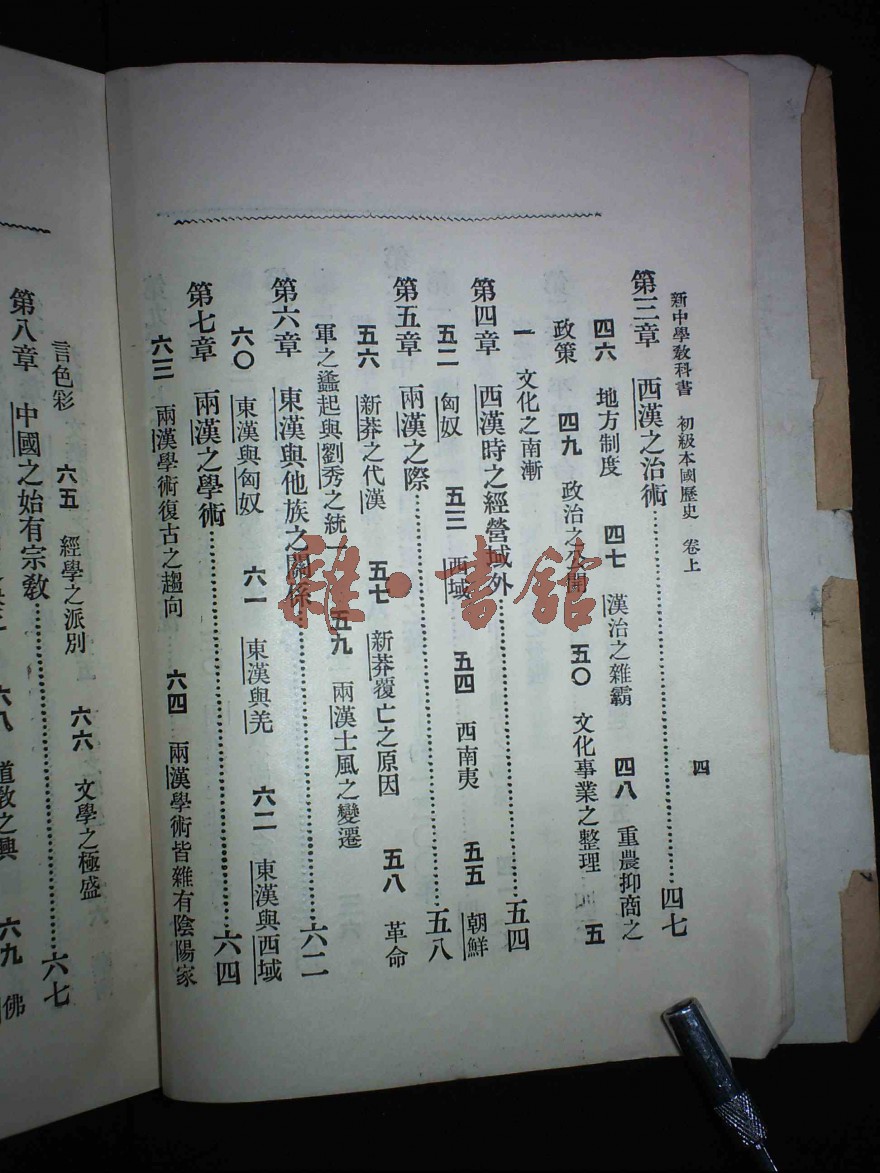 新中學教科書　初級本國歷史　卷上
四
第三章　西漢之治術……四七
四六　地方制度　四七　漢治之雜霸　四八　重農抑商之
政策　四九　政治之公開　五〇　文化事業之整理　五
一　文化之南漸
第四章　西漢時之經營域外……五四
五二　匈奴　五三　西域　五四　西南夷　五五　朝鮮
第五章　兩漢之際……五八
五六　新莽之代漢　五七　新莽覆亡之原因　五八　革命
軍之蠭起與劉秀之統一　五九　兩漢士風之變遷
第六章　東漢與他族之關係……六二
六〇　東漢與匈奴　六一　東漢與羌　六二　東漢與西域
第七章　兩漢之學術……六四
六三　兩漢學術復古之趨向　六四　兩漢學術皆雜有陰陽家
言色彩　六五　經學之派別　六六　文學之極盛
第八章　中國之始有宗教……六七
六八　道教之興　六九　佛
雜·書館